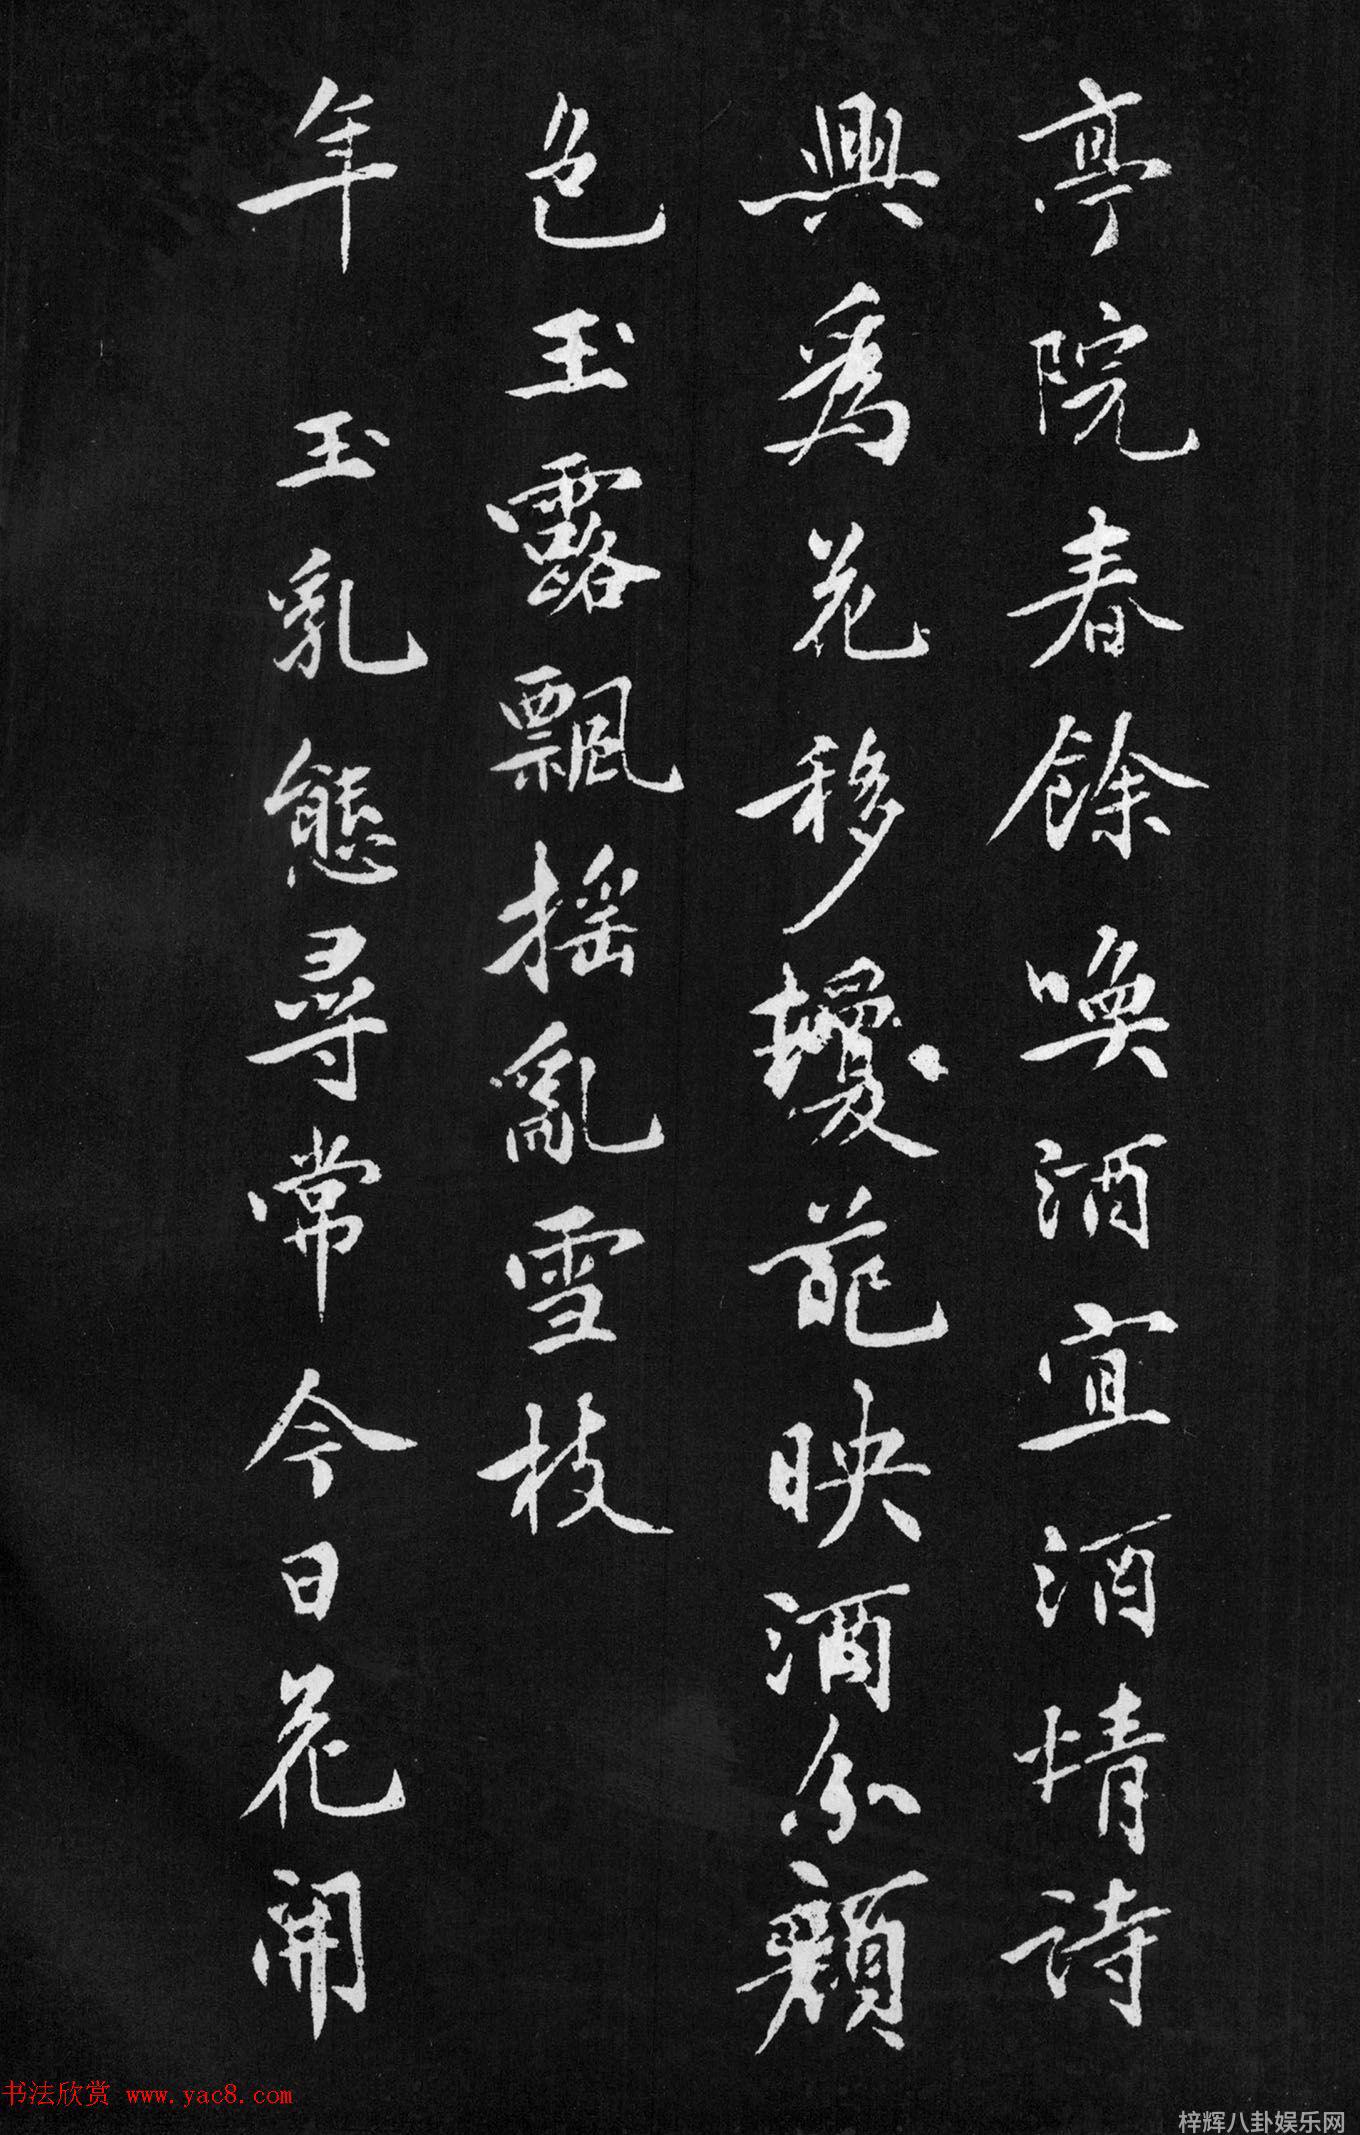 亭院春餘喚酒宜酒情詩
興爲花移擾花映酒分顏
色玉露飄搖亂雪枝
年 玉乳態尋常今日花開
书法欣赏 www.yac8.com
梓辉八卦娱乐网